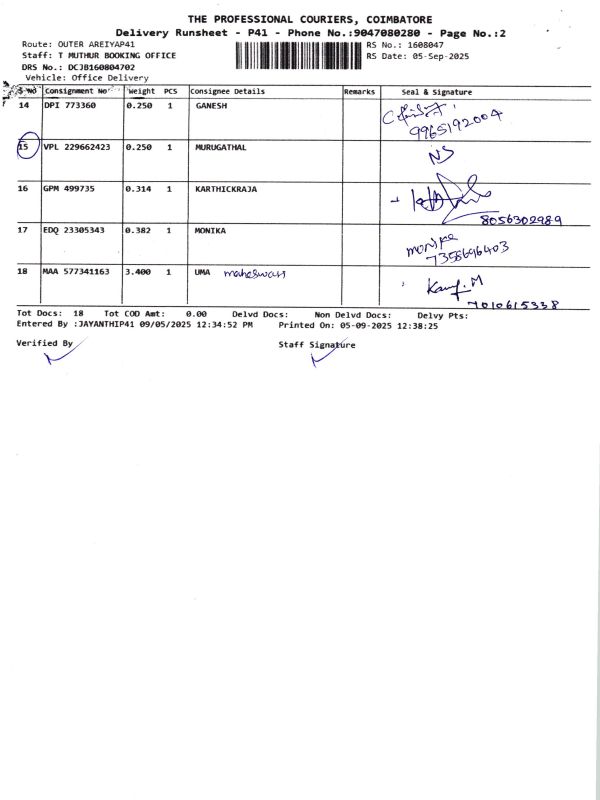 THE PROFESSIONAL COURIERS, COIMBATORE
Delivery Runsheet - P41 - Phone No.:9047080280 - Page No.:2
Route: OUTER AREIYAP41 RS No.: 1608047
Staff: T MUTHUR BOOKING OFFICE RS Date: 05-Sep-2025
DRS No.: DCJB160804702
Vehicle: Office Delivery
S No Consignment No Weight PCS Consignee Details Remarks Seal & Signature
14 DPI 773360 0.250 1 GANESH
9965192004
15 VPL 229662423 0.250 1 MURUGATHAL NS
16 GPM 499735 0.314 1 KARTHICKRAJA
8056302989
17 EDQ 23305343 0.382 1 MONIKA
7358696403
18 MAA 577341163 3.400 1 UMA maheswari
7010615338
Tot Docs: 18 Tot COD Amt: 0.00 Delvd Docs: Non Delvd Docs: Delvy Pts:
Entered By :JAYANTHIP41 09/05/2025 12:34:52 PM Printed On: 05-09-2025 12:38:25
Verified By Staff Signature